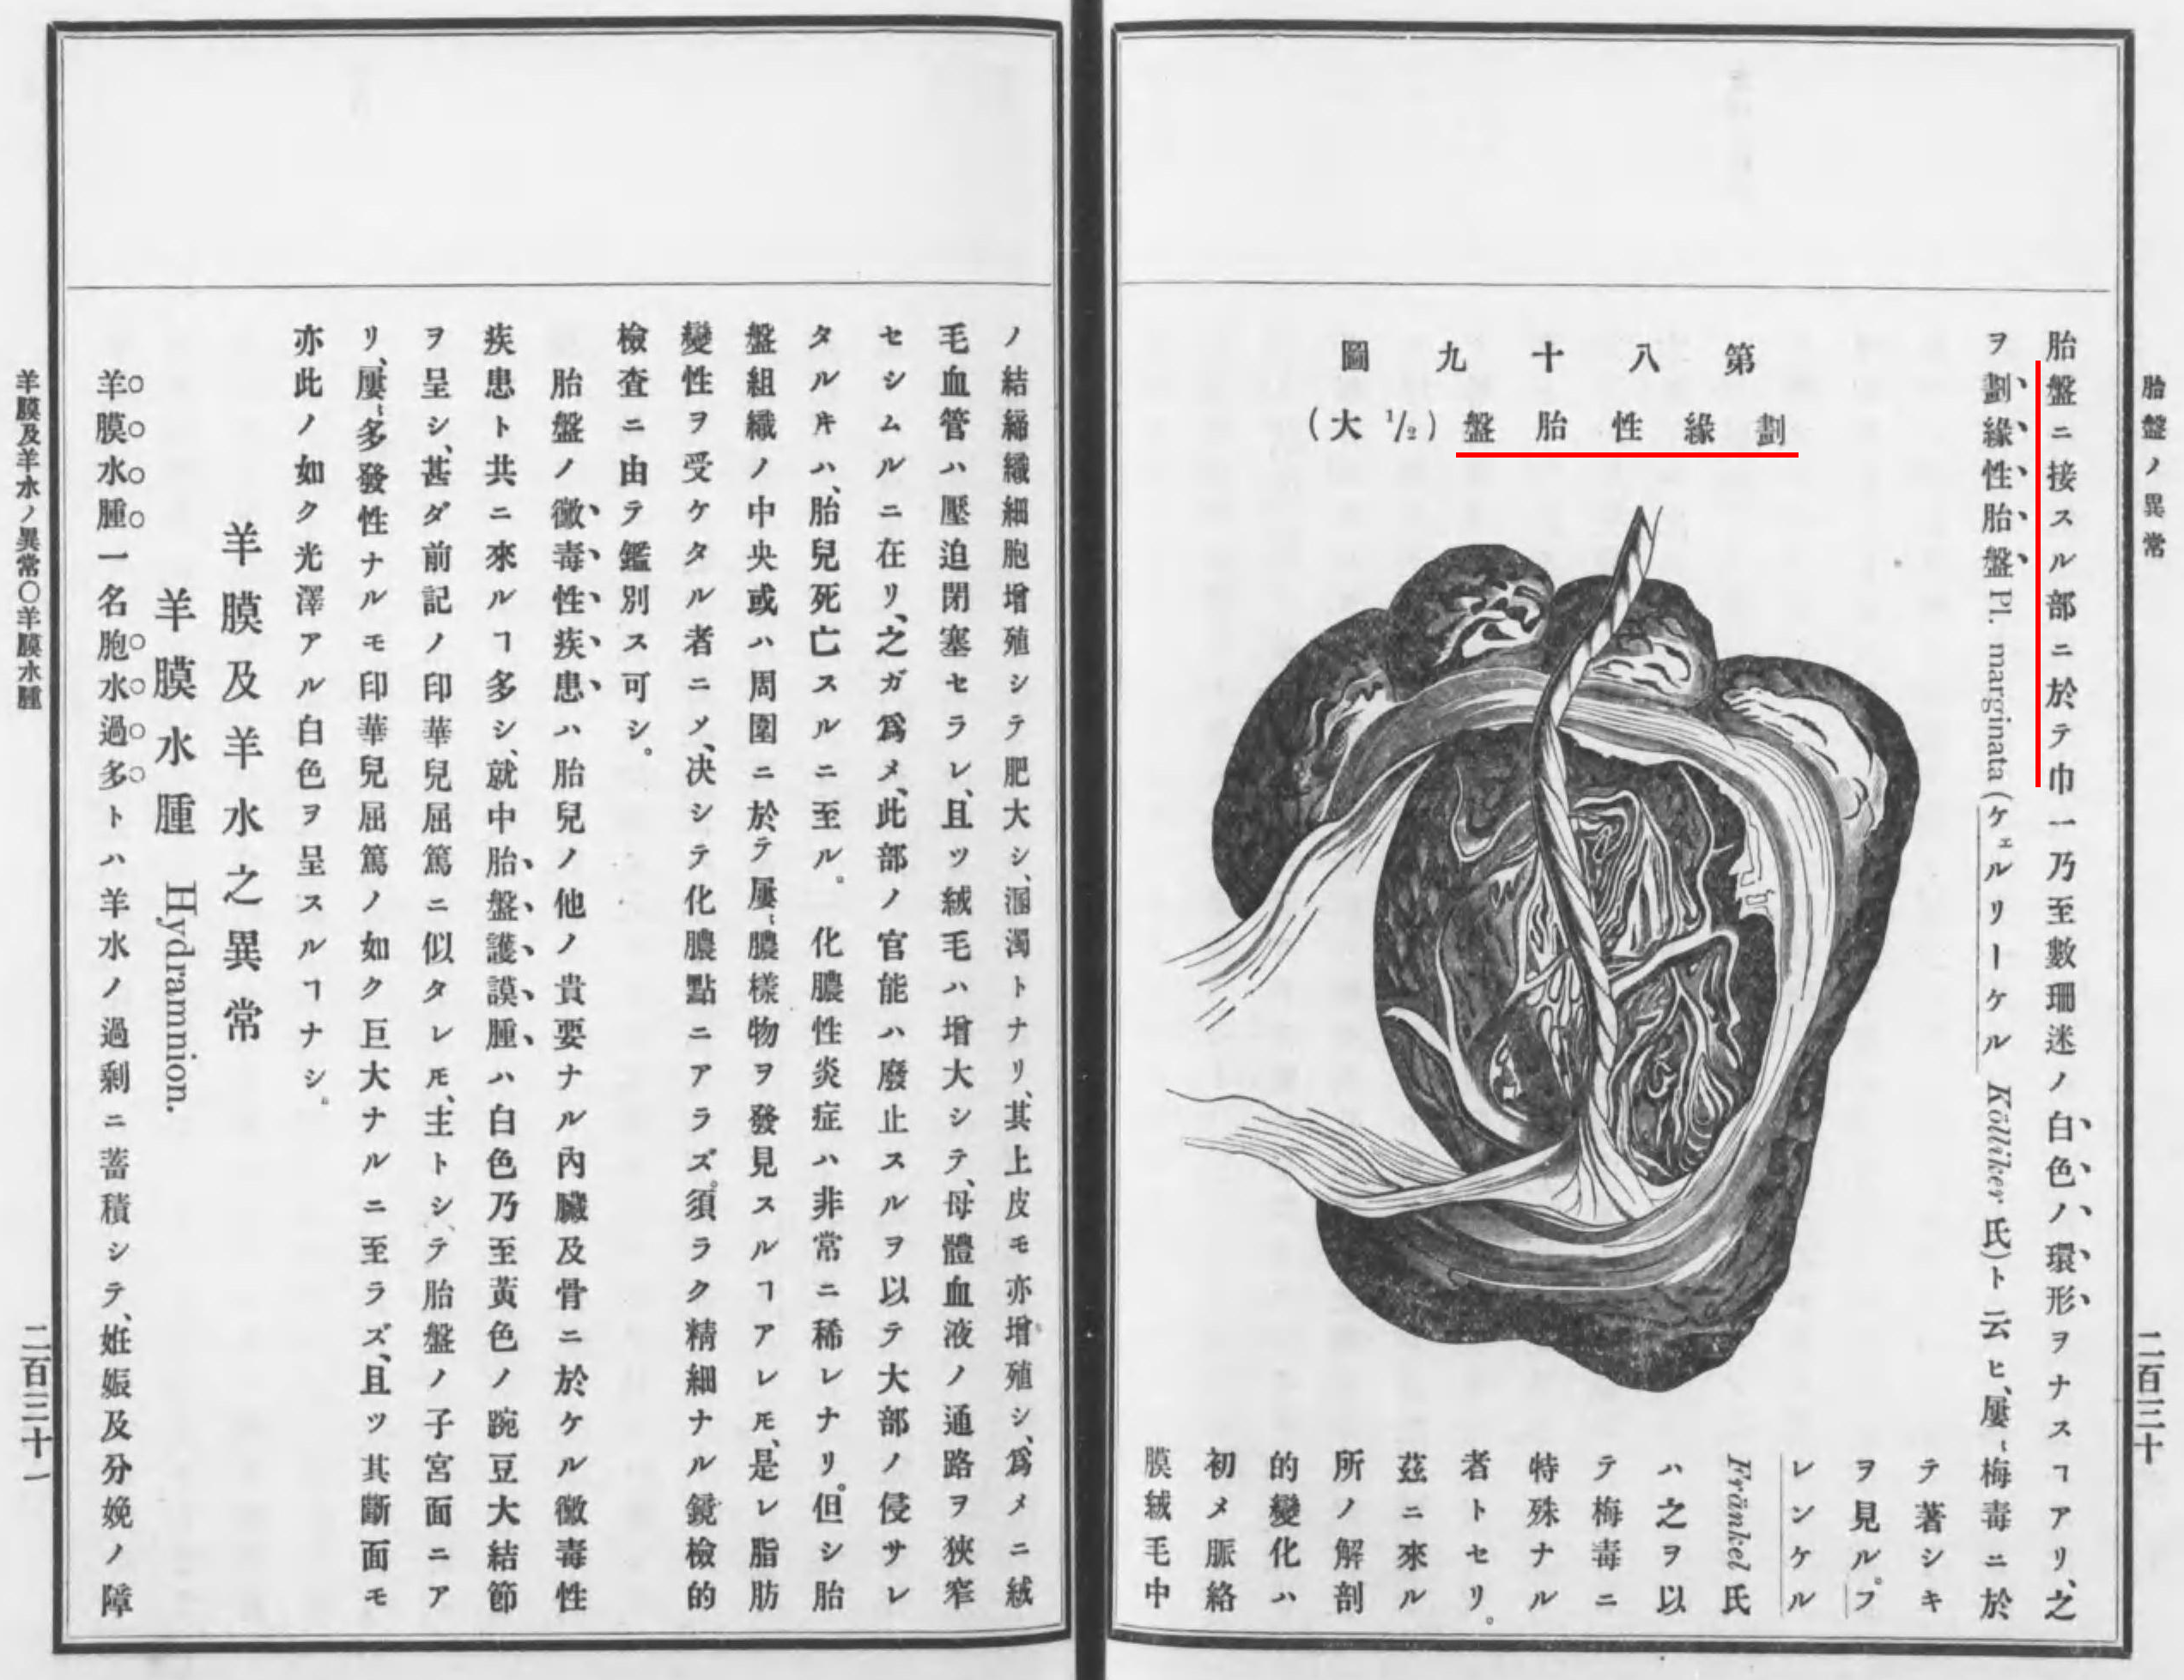 胎盤ノ異常
二百三十
胎盤ニ接スル部ニ於テ巾一乃至數珊迷ノ白色ノ環形ヲナスヿアリ、之
ヲ劃緣性胎盤 Pl. marginata (ケェルリーケル Kölliker 氏)ト云ヒ、屢〻梅毒ニ於
第八十九圖
劃緣性胎盤(½大)
テ著シキ
ヲ見ル。フ
レンケル
Fränkel 氏
ハ之ヲ以
テ梅毒ニ
特殊ナル
者トセリ。
茲ニ來ル
所ノ解剖
的變化ハ
初メ脈絡
膜絨毛中
ノ結締織細胞增殖シテ肥大シ、溷濁トナリ、其上皮モ亦增殖シ、爲メニ絨
毛血管ハ壓迫閉塞セラレ、且ツ絨毛ハ增大シテ、母體血液ノ通路ヲ狹窄
セシムルニ在リ、之ガ爲メ、此部ノ官能ハ廢止スルヲ以テ大部ノ侵サレ
タル𪜈ハ、胎兒死亡スルニ至ル。 化膿性炎症ハ非常ニ稀レナリ。但シ胎
盤組織ノ中央或ハ周圍ニ於テ屢〻膿樣物ヲ發見スルヿアレ𪜈、是レ脂肪
變性ヲ受ケタル者ニメ、決シテ化膿點ニアラズ。須ラク精細ナル鏡檢的
檢査ニ由テ鑑別ス可シ。
胎盤ノ黴毒性疾患ハ胎兒ノ他ノ貴要ナル內臟及骨ニ於ケル黴毒性
疾患ト共ニ來ルヿ多シ、就中胎盤護謨腫ハ白色乃至黃色ノ豌豆大結節
ヲ呈シ、甚ダ前記ノ印華兒屈篤ニ似タレ𪜈、主トシテ胎盤ノ子宮面ニア
リ、屢〻多發性ナルモ印華兒屈篤ノ如ク巨大ナルニ至ラズ、且ツ其斷面モ
亦此ノ如ク光澤アル白色ヲ呈スルヿナシ。
羊膜及羊水之異常
羊膜水腫 Hydramnion.
羊膜水腫一名胞水過多トハ羊水ノ過剩ニ蓄積シテ、姙娠及分娩ノ障
羊膜及羊水ノ異常〇羊膜水腫
二百三十一